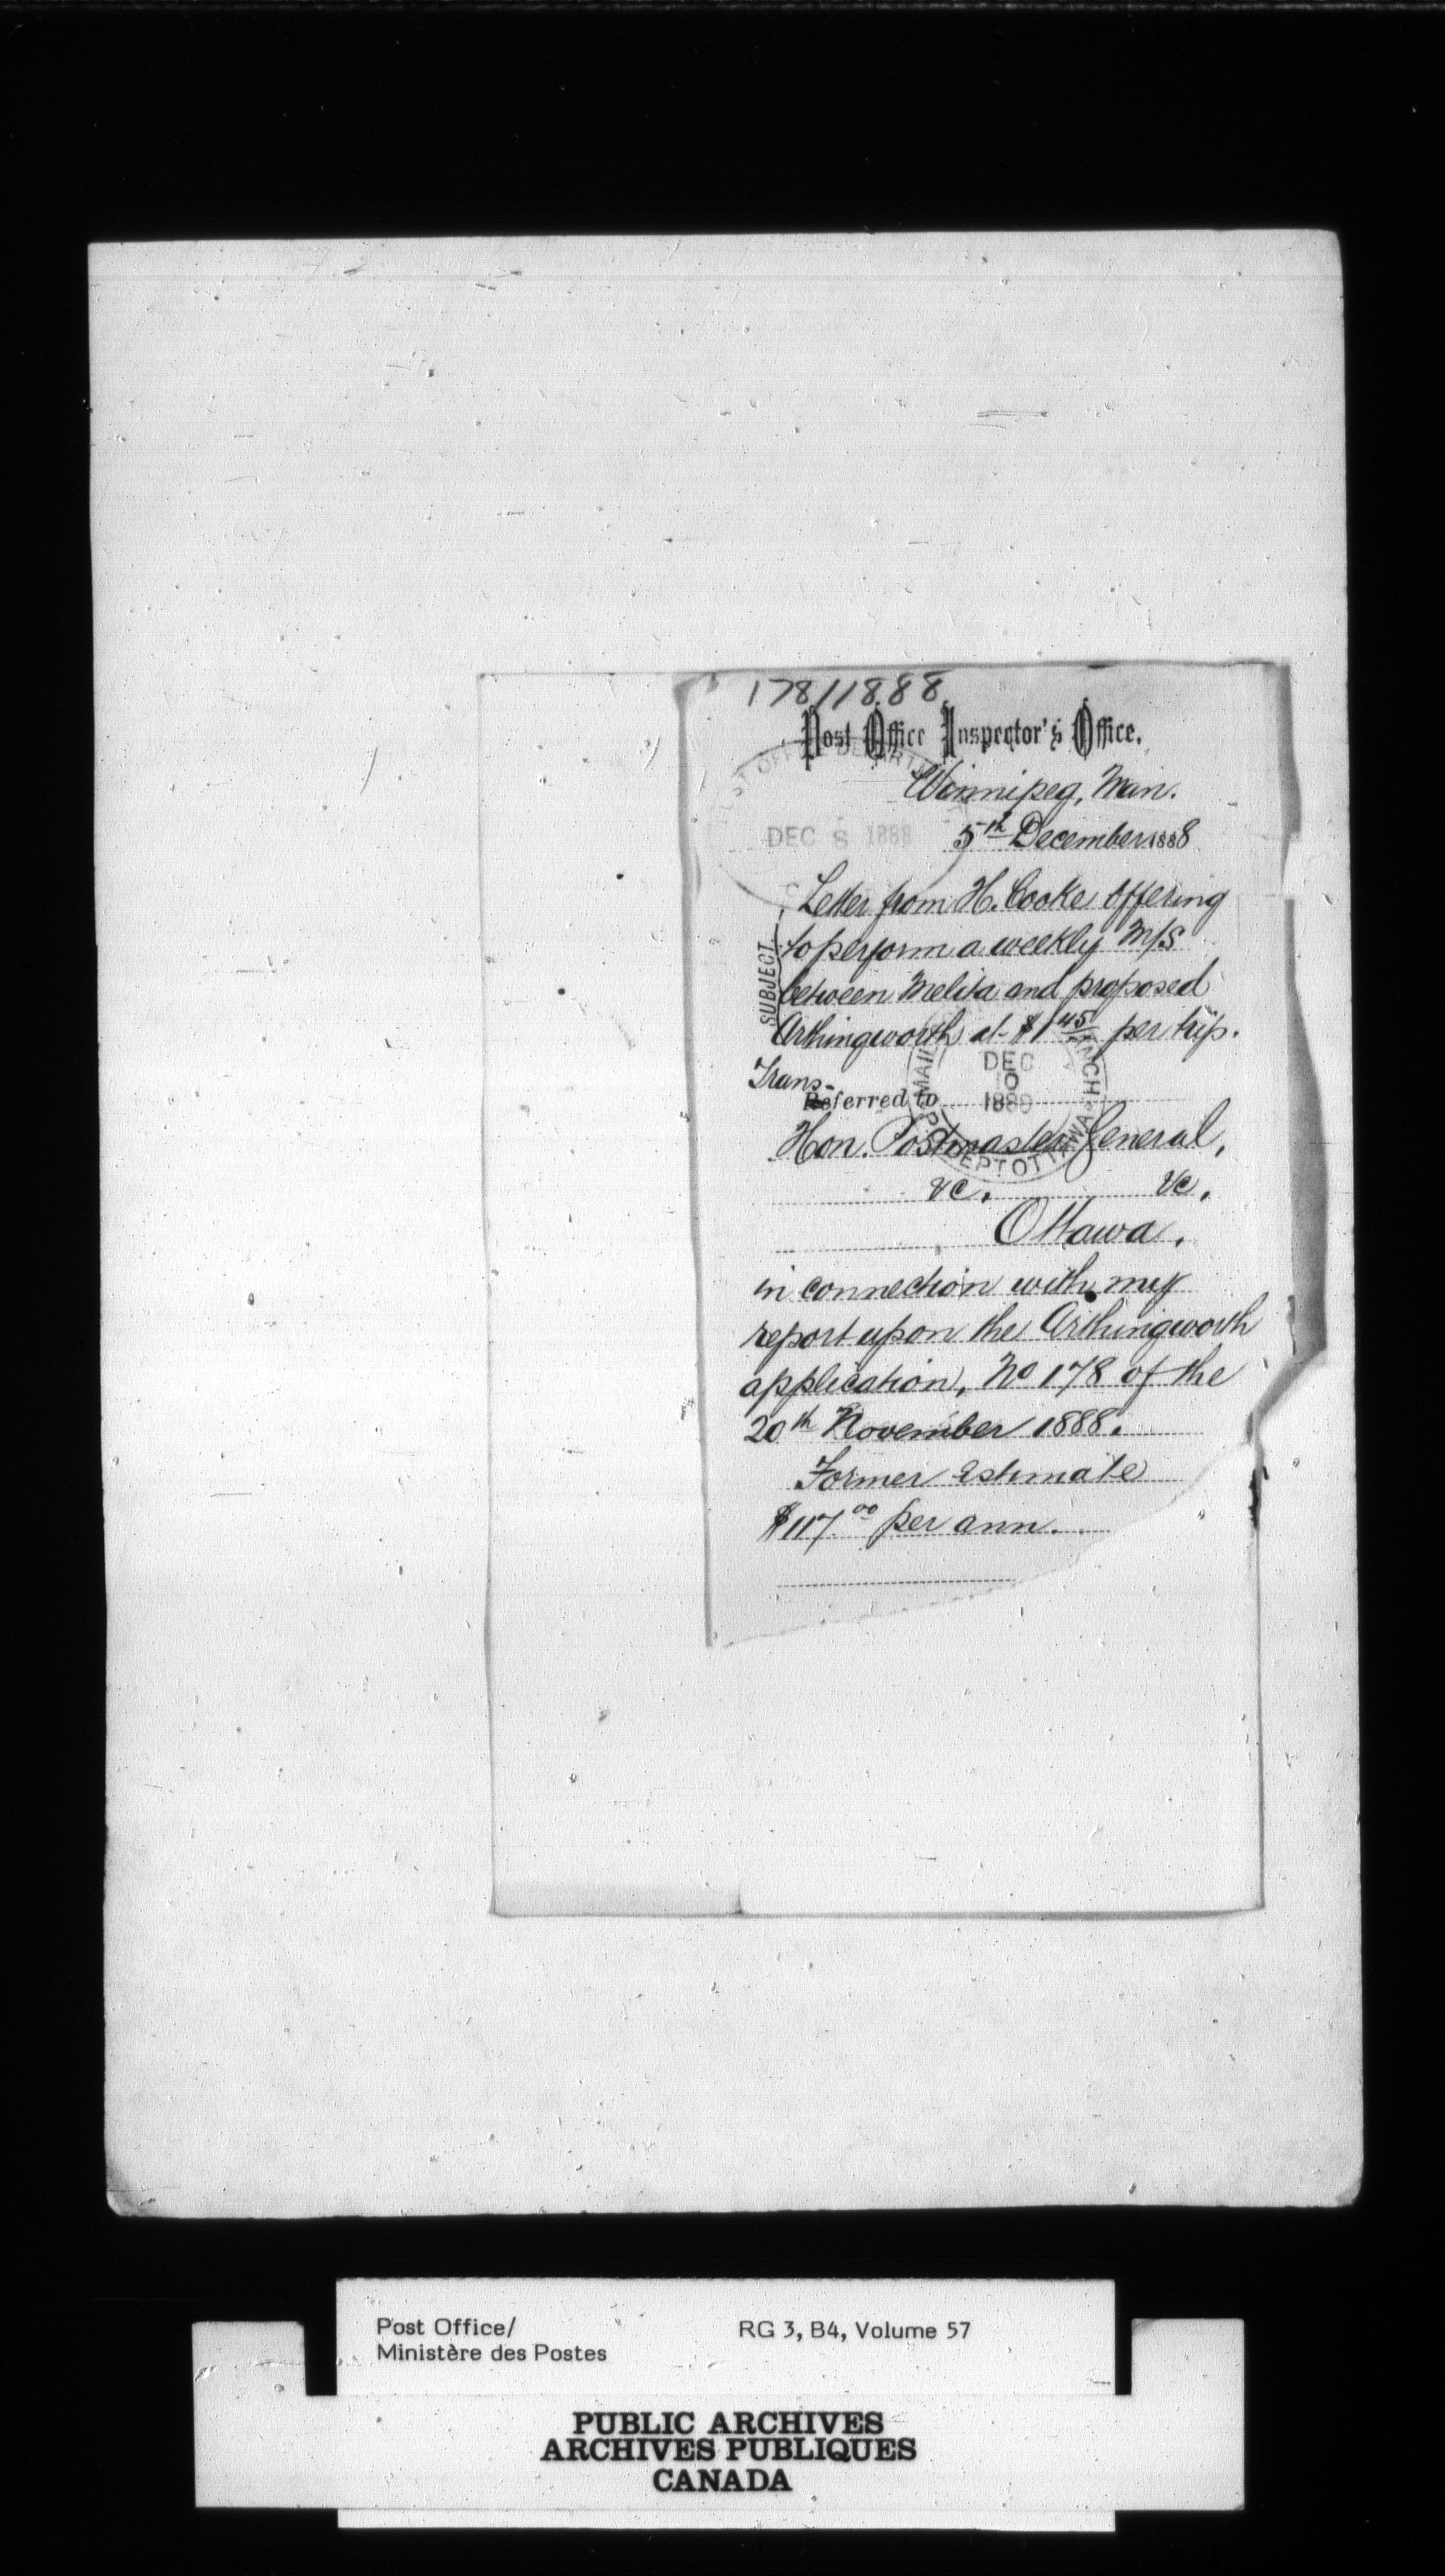 178/1888.
Post Office Inspector's Office.
Winnipeg, Man.
5th December 1888
POST OFFICE DEPARTM
DEC 8 1888
SUBJECT.
Letter from H. Cooke offering
to perform a weekly M/S
between Melita and proposed
Arthingworth at $1 45/ per trip.
DEC
10
1888
MAIL
ANCH
DEPT OTTAWA
Trans-
Referred to
Hon. Postmaster General,
&c. &c.
Ottawa.
in connection with my
report upon the Arthingworth
application, No 178 of the
20th November 1888.
Former estimate
$117.00 per ann.
Post Office/
Ministère des Postes
RG 3, B4, Volume 57
PUBLIC ARCHIVES
ARCHIVES PUBLIQUES
CANADA